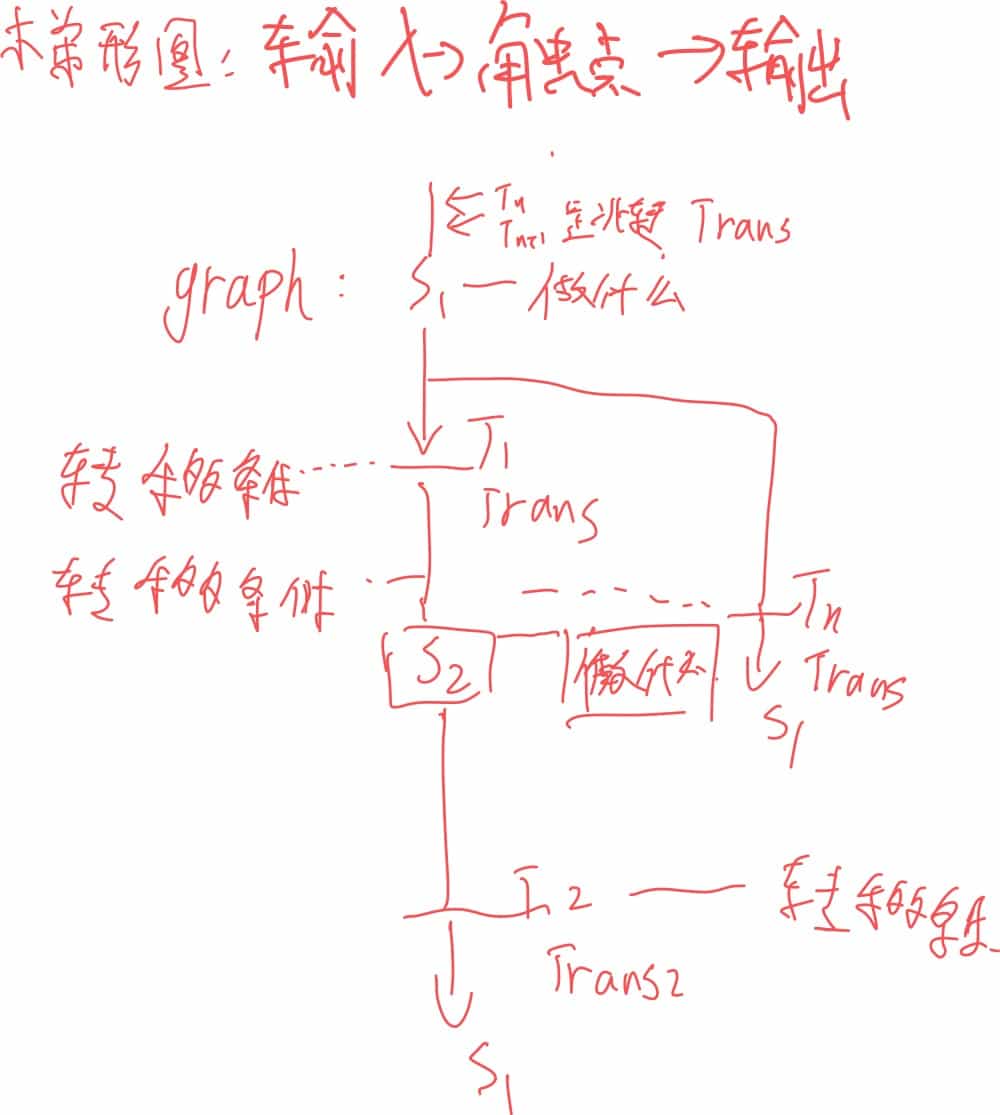 梯形图: 输入→触点→输出
Tn
Tn+1 是跳转 Trans
graph: S1 — 做什么
T1
转换的条件
Trans
转换的条件
Tn
S2 做什么
Trans
S1
T2 转换的条件
Trans2
S1